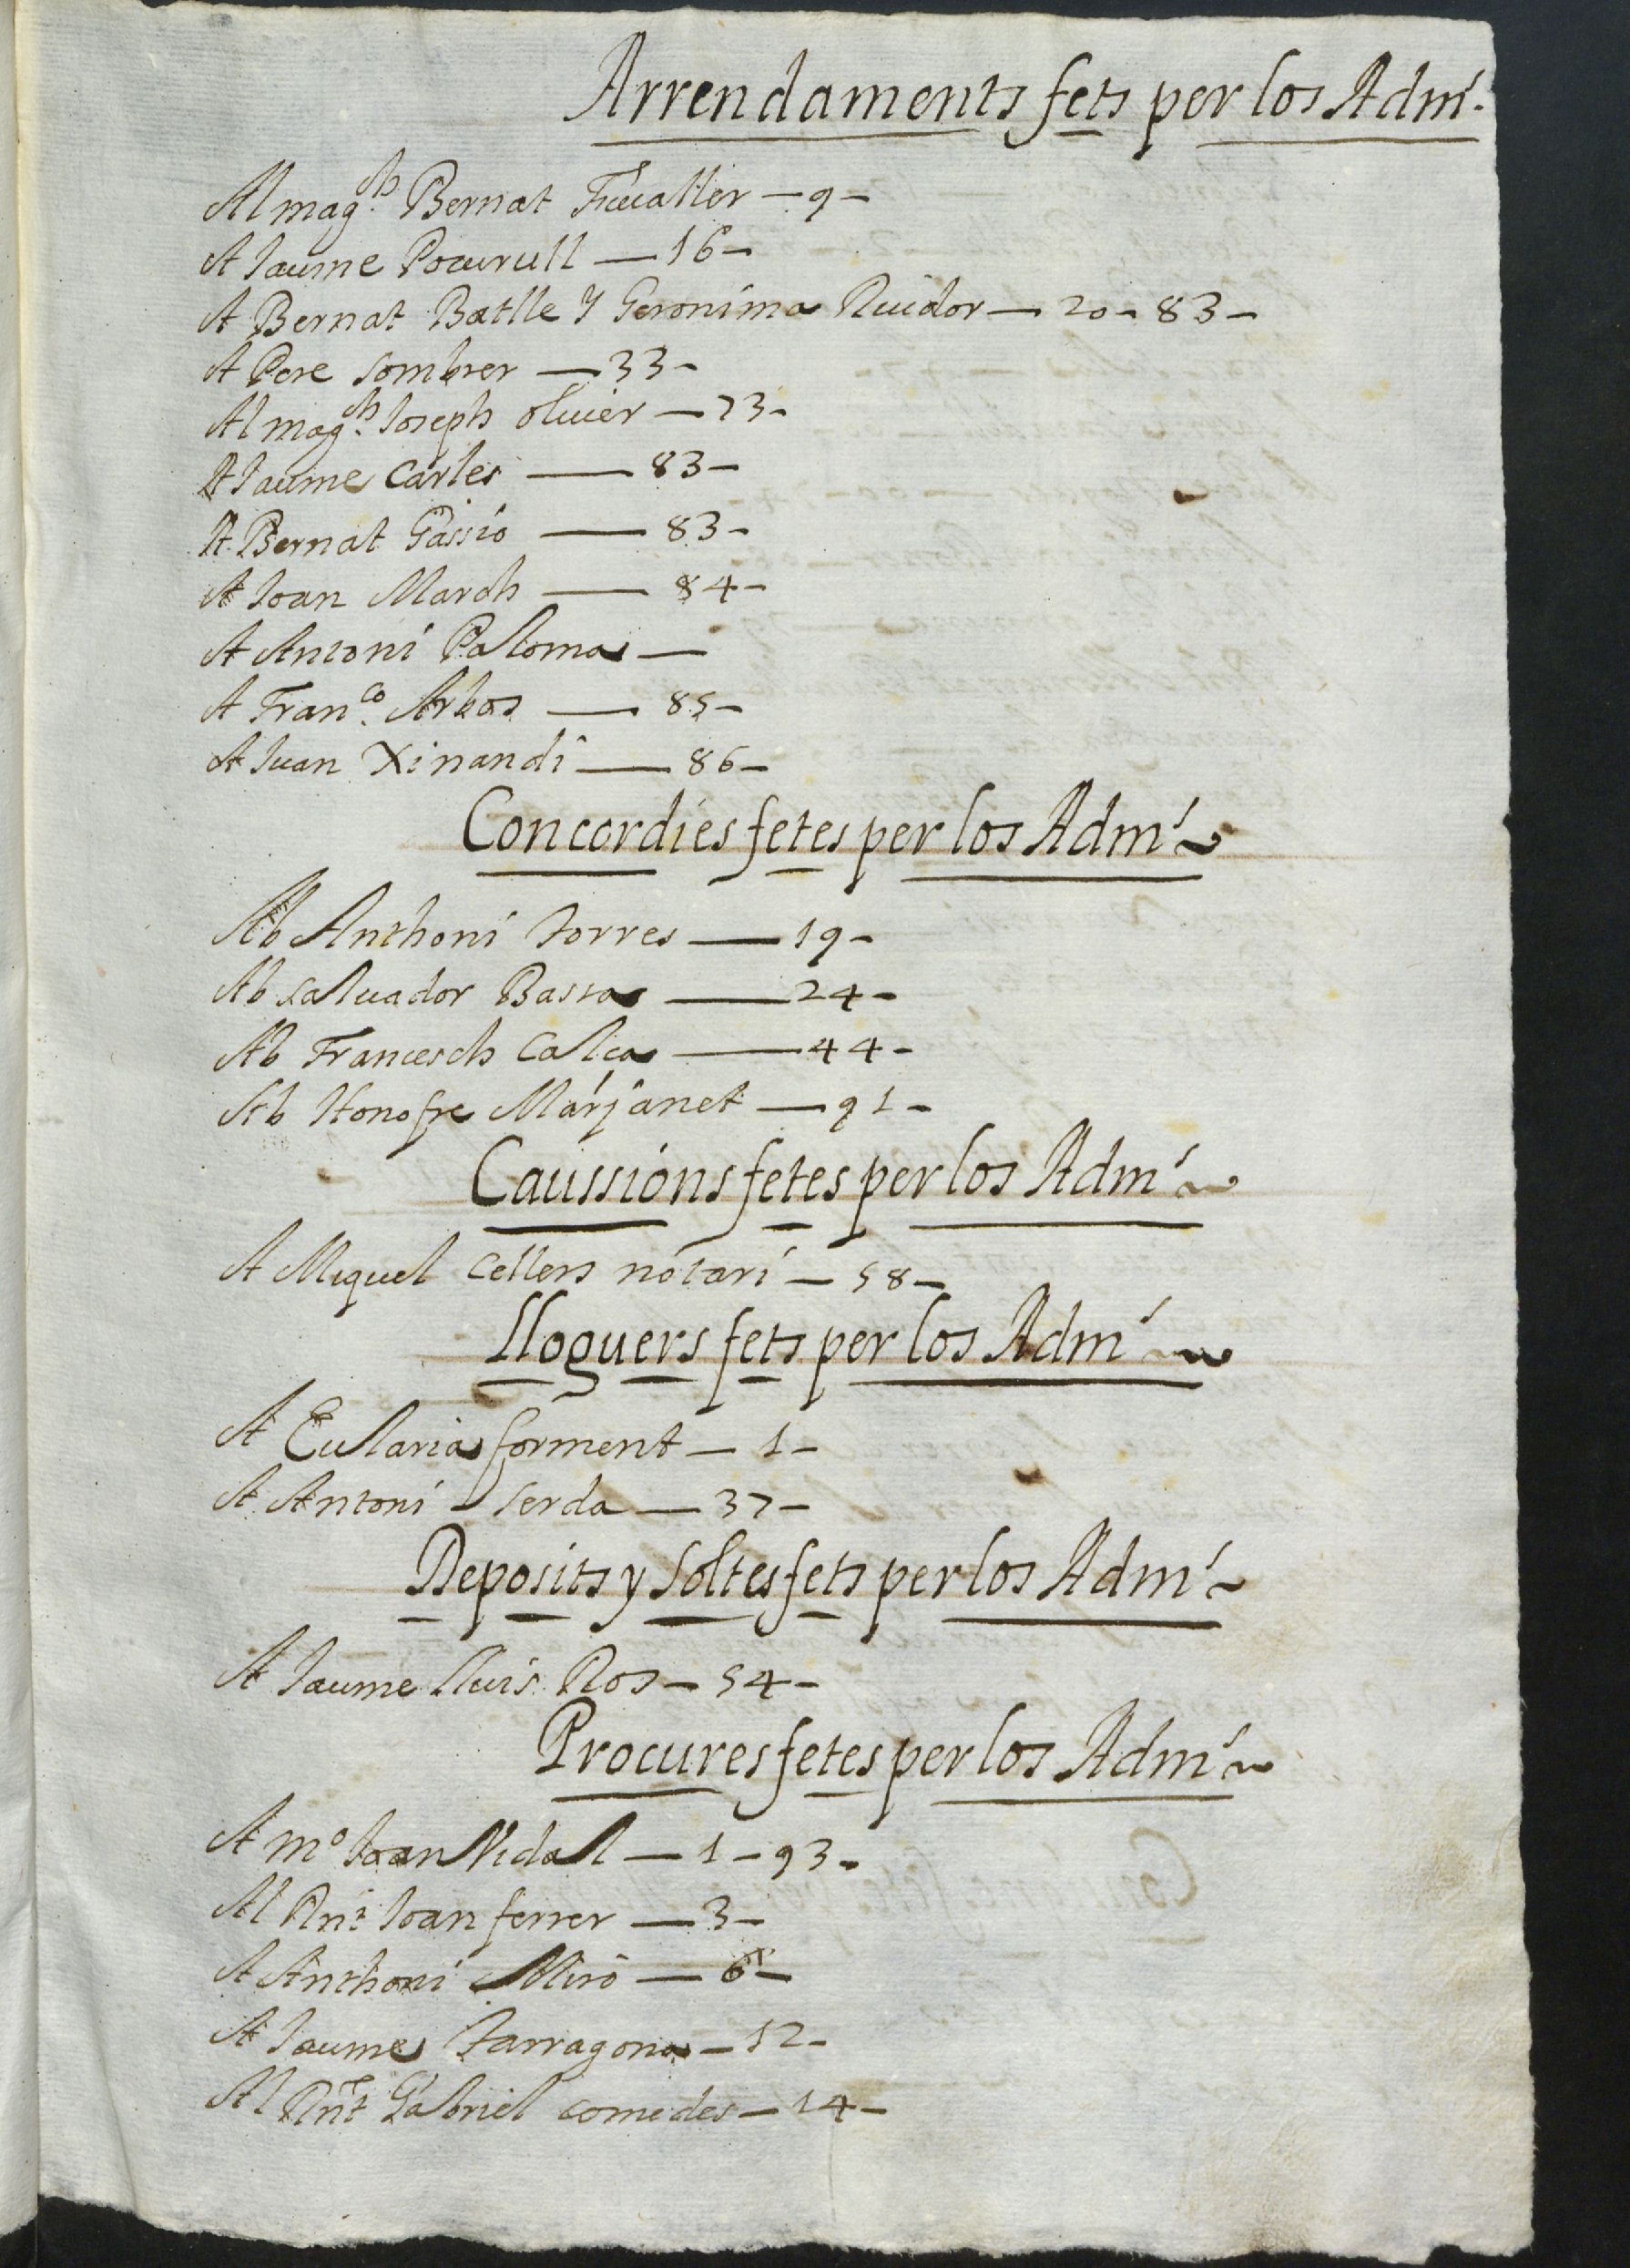 Arrendaments fets per los Adm.
Al mag.ch Bernat Fiuealler — 9 —
A Jaume Pocurull — 16 —
A Bernat Batlle y Geronima Ruidor — 20 — 83 —
A Pere Sombrer — 33 —
Al mag.ch Joseph oliuer — 73 —
A Jaume Carles — 83 —
A Bernat Gassio — 83 —
A Joan March — 84 —
A Antoni Paloma —
A Fran.co Arbos — 85 —
A Juan Xinandi — 86 —
Concordies fetes per los Adm
Ab Anthoni Torres — 19 —
Ab Saluador Bassa — 24 —
Ab Francesch Calca — 44 —
Ab Honofre Marjanet — 91 —
Caussions fetes per los Adm
A Miquel Cellers notari — 58 —
Lloguers fets per los Adm
A Eularia forment — 1 —
A Antoni Serda — 37 —
Deposits y Soltes fets per los Adm
A Jaume Lluis Ros — 54 —
Procures fetes per los Adm
A m.o Joan Vidal — 1 — 93 —
Al Rnt Joan ferrer — 3 —
A Anthoni Miro — 6 —
A Jaume Tarragona — 12 —
Al Rnt Gabriel comedes — 14 —